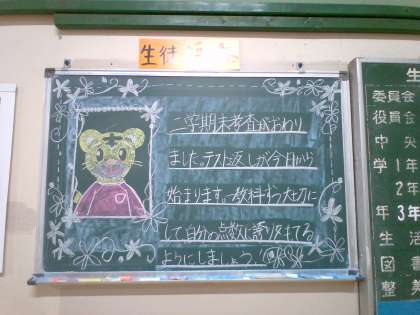 生徒
二学期末考査がおわり
ました。テスト返しが今日から
始まります。一教科ずつ大切に
して自分の点数に誇りをもてる
ようにしましょう。
生
委員会
役員会
中央
学1年
2年
年3年
生活
図書
整美